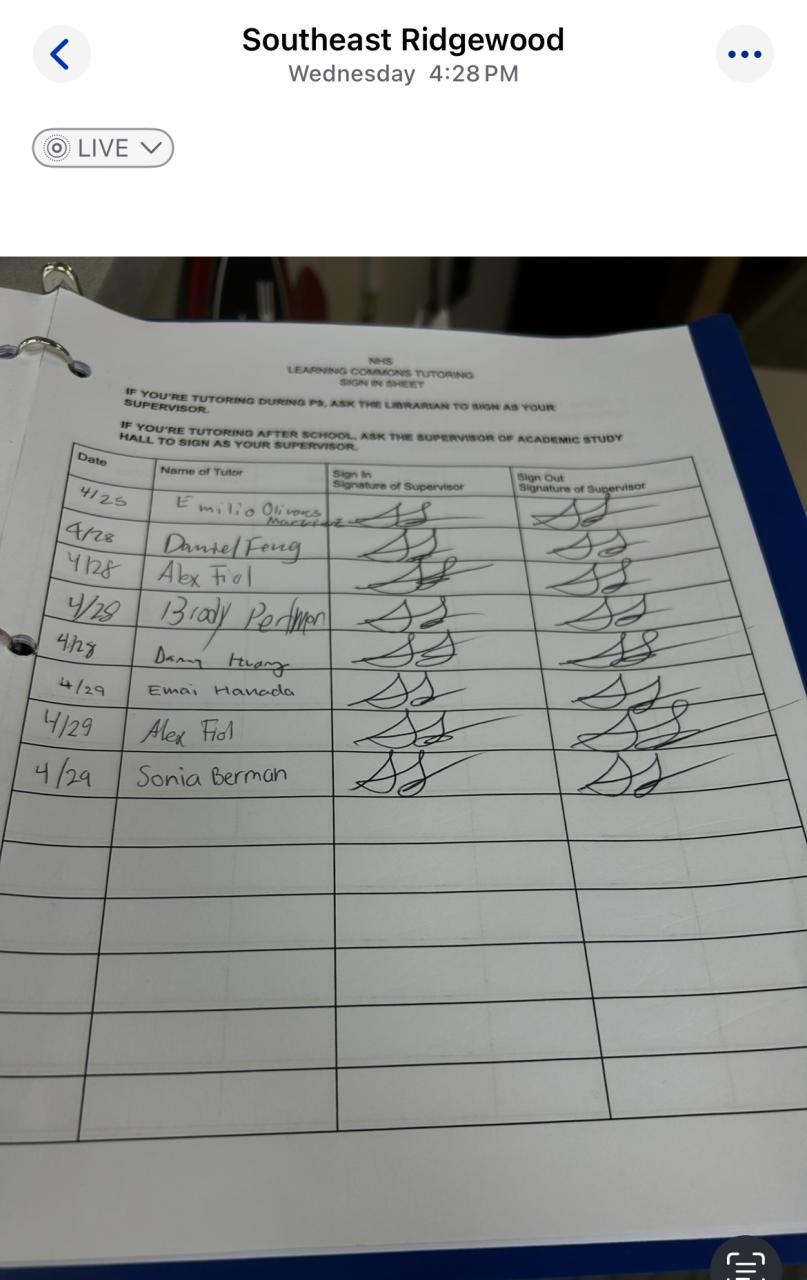 Southeast Ridgewood
Wednesday 4:28 PM
LIVE
NHS
LEARNING COMMONS TUTORING
SIGN IN SHEET
IF YOU'RE TUTORING DURING P9, ASK THE LIBRARIAN TO SIGN AS YOUR
SUPERVISOR.
IF YOU'RE TUTORING AFTER SCHOOL, ASK THE SUPERVISOR OF ACADEMIC STUDY
HALL TO SIGN AS YOUR SUPERVISOR.
Date Name of Tutor Sign In Signature of Supervisor Sign Out Signature of Supervisor
4/25 Emilio Olivares Martinez
4/28 Daniel Feng
4/28 Alex Fiol
4/28 Brody Perlman
4/28 Danny Huang
4/29 Emai Hanada
4/29 Alex Fiol
4/29 Sonia Berman